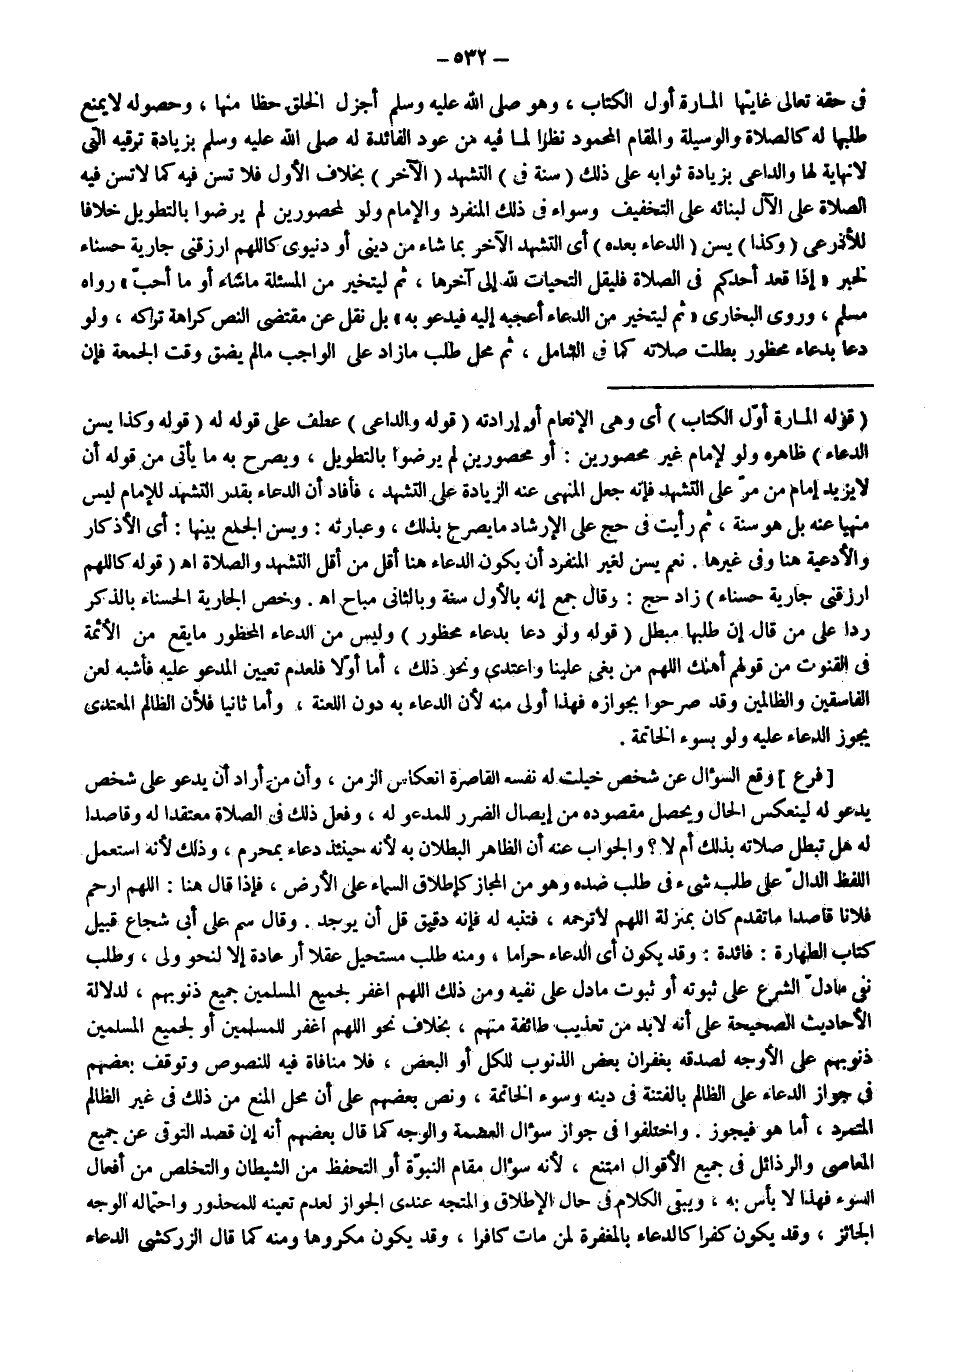 – ٥٣٢ –
فى حقه تعالى غايتها المارة أول الكتاب ، وهو صلى الله عليه وسلم أجزل الخلق حظا منها ، وحصوله لايمنع
طلبها له كالصلاة والوسيلة والمقام المحمود نظرا لما فيه من عود الفائدة له صلى الله عليه وسلم بزيادة ترقيه التى
لانهاية لها والداعى بزيادة ثوابه على ذلك ( سنة فى ) التشهد ( الآخر ) بخلاف الأول فلا تسن فيه كما لاتسن فيه
الصلاة على الآل لبنائه على التخفيف وسواء فى ذلك المنفرد والإمام ولو لمحصورين لم يرضوا بالتطويل خلافا
للأذرعى ( وكذا ) يسن ( الدعاء بعده ) أى التشهد الآخر بما شاء من دينى أو دنيوى كاللهم ارزقنى جارية حسناء
لخبر « إذا قعد أحدكم فى الصلاة فليقل التحيات لله إلى آخرها ، ثم ليتخير من المسئلة ماشاء أو ما أحبّ » رواه
مسلم ، وروى البخارى « ثم ليتخير من الدعاء أعجبه إليه فيدعو به » بل نقل عن مقتضى النص كراهة تراكه ، ولو
دعا بدعاء محظور بطلت صلاته كما فى الشامل ، ثم محل طلب مازاد على الواجب مالم يضق وقت الجمعة فإن
( قوله المارة أوّل الكتاب ) أى وهى الإنعام أو إرادته ( قوله والداعى ) عطف على قوله له ( قوله وكذا يسن
الدعاء ) ظاهره ولو لإمام غير محصورين : أو محصورين لم يرضوا بالتطويل ، ويصرح به ما يأتى من قوله أن
لايزيد إمام من مرّ على التشهد فإنه جعل المنهى عنه الزيادة على التشهد ، فأفاد أن الدعاء بقدر التشهد للإمام ليس
منهيا عنه بل هو سنة ، ثم رأيت فى حج على الإرشاد مايصرح بذلك ، وعبارته : ويسن الجمع بينها : أى الأذكار
والأدعية هنا وفى غيرها . نعم يسن لغير المنفرد أن يكون الدعاء هنا أقل من أقل التشهد والصلاة اه ( قوله كاللهم
ارزقنى جارية حسناء ) زاد حج : وقال جمع إنه بالأول سنة وبالثانى مباح اه . وخص الجارية الحسناء بالذكر
ردا على من قال إن طلبها مبطل ( قوله ولو دعا بدعاء محظور ) وليس من الدعاء المحظور مايقع من الأئمة
فى القنوت من قولهم أهلك اللهم من بغى علينا واعتدى ونحو ذلك ، أما أوّلا فلعدم تعيين المدعو عليه فأشبه لعن
الفاسقين والظالمين وقد صرحوا بجوازه فهذا أولى منه لأن الدعاء به دون اللعنة ، وأما ثانيا فلأن الظالم المعتدى
يجوز الدعاء عليه ولو بسوء الخاتمة .
[ فرع ] وقع السؤال عن شخص خيلت له نفسه القاصرة انعكاس الزمن ، وأن من أراد أن يدعو على شخص
يدعو له لينعكس الحال ويحصل مقصوده من إيصال الضرر للمدعو له ، وفعل ذلك فى الصلاة معتقدا له وقاصدا
له هل تبطل صلاته بذلك أم لا ؟ والجواب عنه أن الظاهر البطلان به لأنه حينئذ دعاء بمحرم ، وذلك لأنه استعمل
اللفظ الدالّ على طلب شىء فى طلب ضده وهو من المجاز كإطلاق السماء على الأرض ، فإذا قال هنا : اللهم ارحم
فلانا قاصدا ماتقدم كان بمنزلة اللهم لاترحمه ، فتنبه له فإنه دقيق قل أن يوجد . وقال سم على أبى شجاع قبيل
كتاب الطهارة : فائدة : وقد يكون أى الدعاء حراما ، ومنه طلب مستحيل عقلا أو عادة إلا لنحو ولى ، وطلب
نفى مادلّ الشرع على ثبوته أو ثبوت مادل على نفيه ومن ذلك اللهم اغفر لجميع المسلمين جميع ذنوبهم ، لدلالة
الأحاديث الصحيحة على أنه لابد من تعذيب طائفة منهم ، بخلاف نحو اللهم اغفر للمسلمين أو لجميع المسلمين
ذنوبهم على الأوجه لصدقه بغفران بعض الذنوب للكل أو البعض ، فلا منافاة فيه للنصوص وتوقف بعضهم
فى جواز الدعاء على الظالم بالفتنة فى دينه وسوء الخاتمة ، ونص بعضهم على أن محل المنع من ذلك فى غير الظالم
المتمرد ، أما هو فيجوز . واختلفوا فى جواز سؤال العصمة والوجه كما قال بعضهم أنه إن قصد التوقى عن جميع
المعاصى والرذائل فى جميع الأقوال امتنع ، لأنه سؤال مقام النبوّة أو التحفظ من الشيطان والتخلص من أفعال
السوء فهذا لا بأس به ، ويبقى الكلام فى حال الإطلاق والمتجه عندى الجواز لعدم تعينه للمحذور واحتماله الوجه
الجائز ، وقد يكون كفرا كالدعاء بالمغفرة لمن مات كافرا ، وقد يكون مكروها ومنه كما قال الزركشى الدعاء